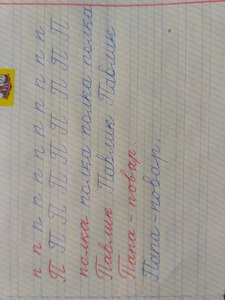 п п п п п п п п п п п п
П П П П П П П П П
полка полка полка полка
Павлик Павлик Павлик
Папа - повар
Папа - повар.